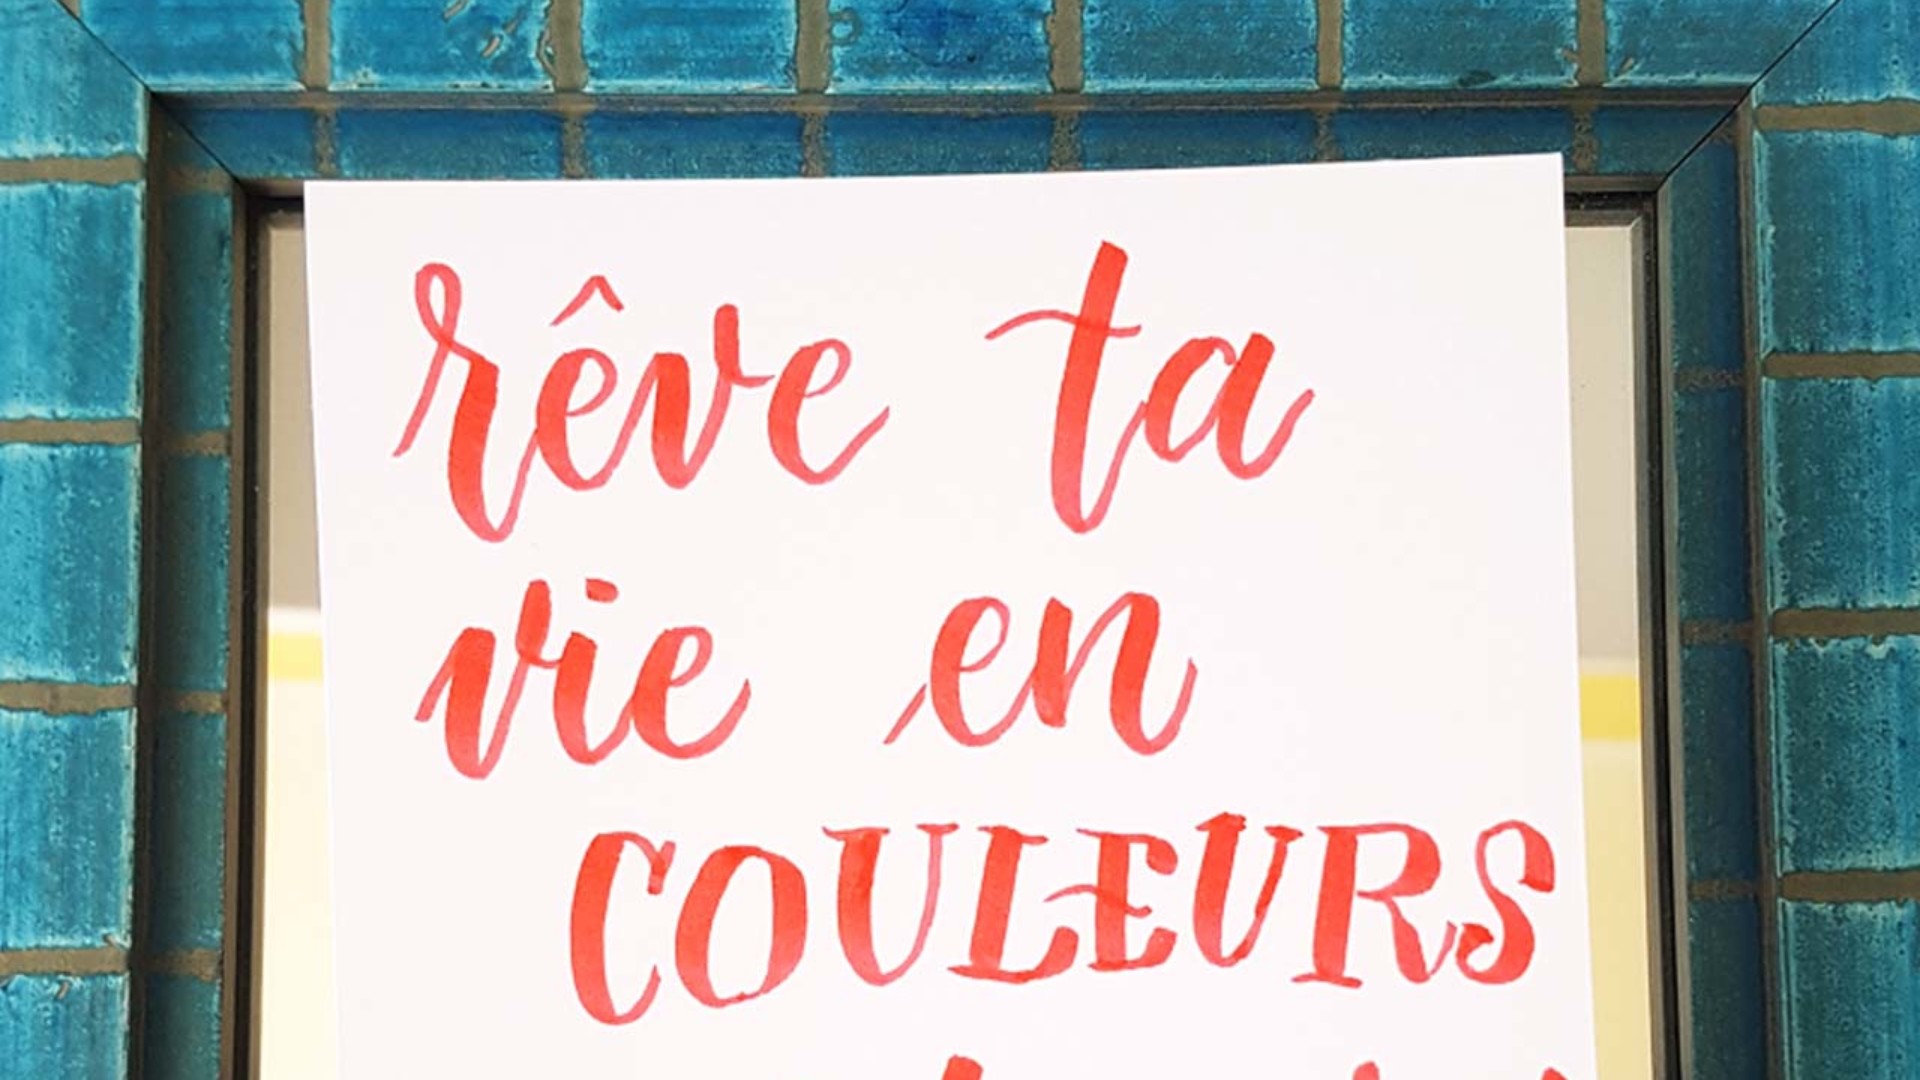 rêve ta
vie en
COULEURS